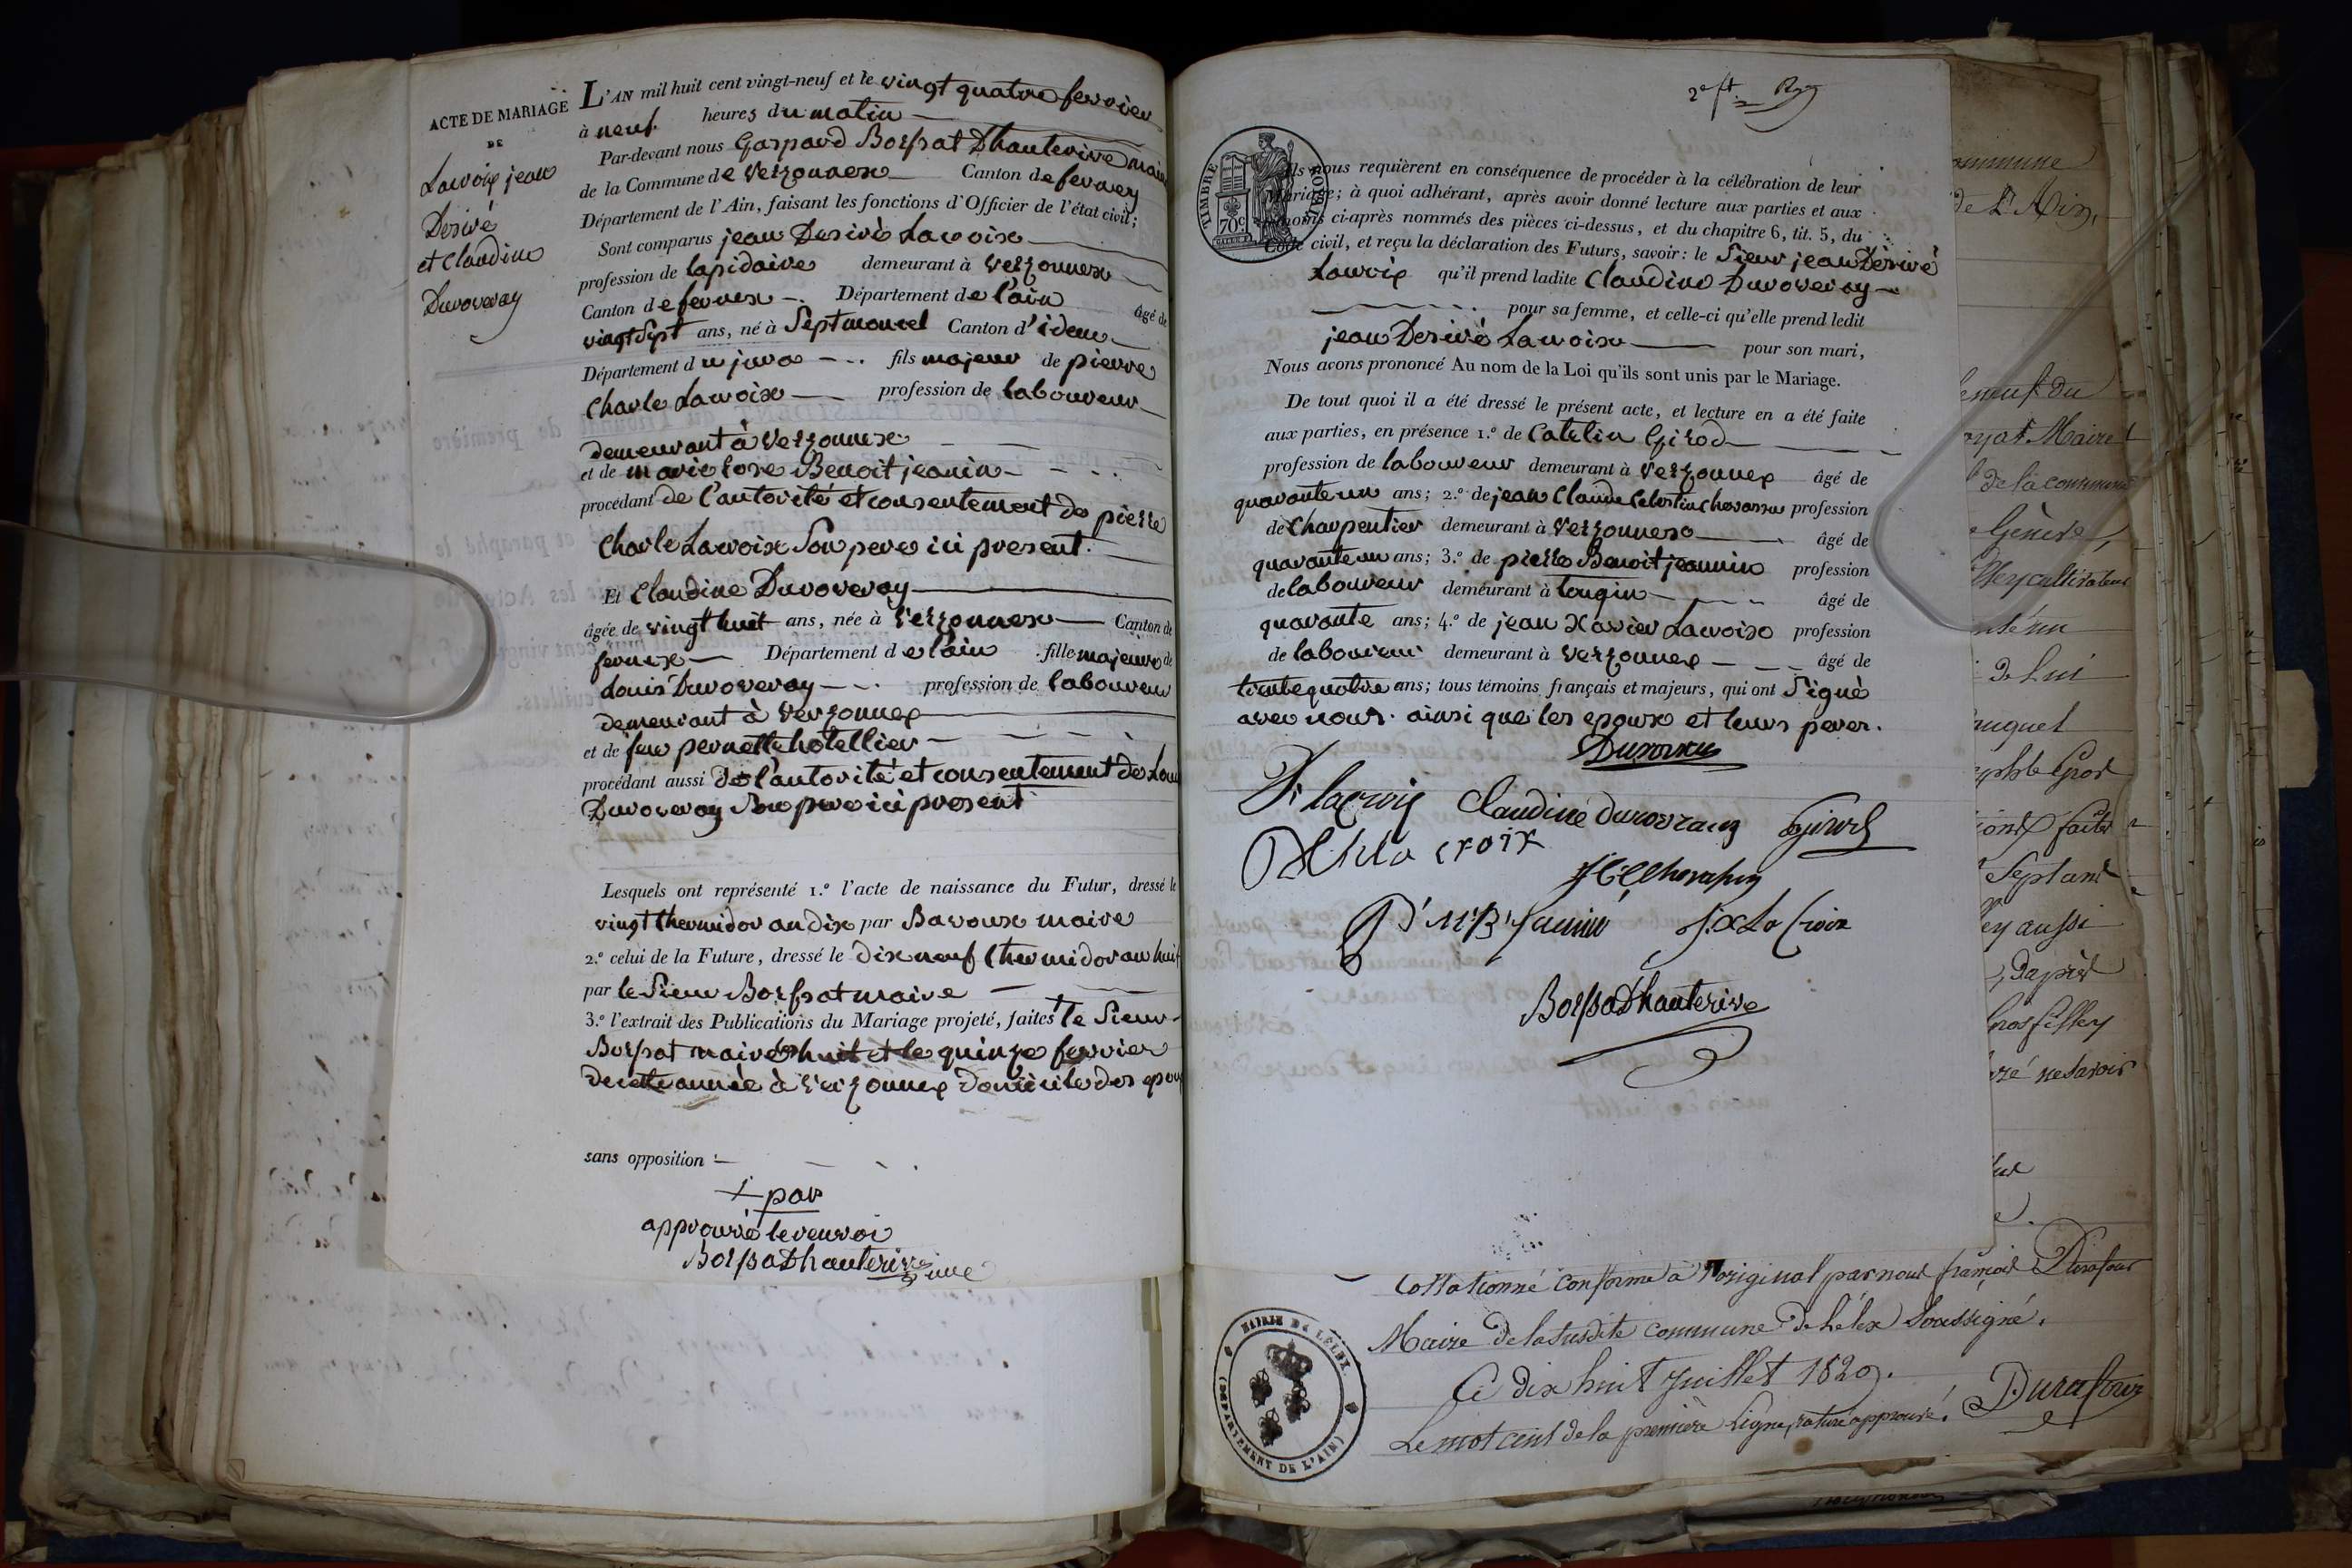 ACTE DE MARIAGE
DE
Lacroix jean
Desiré
et Claudine
Duroveray
L'AN mil huit cent vingt-neuf et le vingt quatre fevrier
à neuf heures du matin
Par-devant nous Gaspard Borssat Dhauterive maire
de la Commune de Verzonnex Canton de ferney
Département de l'Ain, faisant les fonctions d'Officier de l'état civil;
Sont comparus jean Desiré Lacroix
profession de lapidaire demeurant à Verzonnex
Canton de fernex Département de l'ain âgé de
vingt Sept ans, né à Septmoncel Canton d'idem
Département du jura fils majeur de pierre
Charle Lacroix profession de laboureur
demeurant à Verzonnex
et de marie rose Benoit jeanin
procédant de l'autorité et consentement de pierre
Charle Lacroix Son pere ici present.
Et Claudine Duroveray
âgée de vingt huit ans, née à Verzonnex Canton de
fernex Département de l'ain fille majeure de
Louis Duroveray profession de laboureur
demeurant à Verzonnex
et de feue pernette hotellier
procédant aussi de l'autorité et consentement de Louis
Duroveray Son pere ici present
Lesquels ont représenté 1.º l'acte de naissance du Futur, dressé le
vingt thermidor an dix par Baroux maire
2.º celui de la Future, dressé le dix neuf thermidor an huit
par le Sieur Borssat maire
3.º l'extrait des Publications du Mariage projeté, faites + le Sieur
Borssat maire les huit et le quinze fevrier
de cette année à Verzonnex domicile des epoux
sans opposition
+ par
approuvé le renvoi
Borssat Dhauterive
2e ft.
TIMBRE ROYAL
70c
Ils nous requièrent en conséquence de procéder à la célébration de leur
Mariage; à quoi adhérant, après avoir donné lecture aux parties et aux
témoins ci-après nommés des pièces ci-dessus, et du chapitre 6, tit. 5, du
Code civil, et reçu la déclaration des Futurs, savoir: le Sieur jean Désiré
Lacroix qu'il prend ladite Claudine Duroveray
pour sa femme, et celle-ci qu'elle prend ledit
jean Desiré Lacroix pour son mari,
Nous avons prononcé Au nom de la Loi qu'ils sont unis par le Mariage.
De tout quoi il a été dressé le présent acte, et lecture en a été faite
aux parties, en présence 1.º de Catelin Girod
profession de laboureur demeurant à Verzonnex âgé de
quarante un ans; 2.º de jean Claude Celestin Chevassu profession
de Charpentier demeurant à Verzonnex âgé de
quarante un ans; 3.º de pierre Benoit jeannin profession
de laboureur demeurant à tougin âgé de
quarante ans; 4.º de jean Xavier Lacroix profession
de laboureur demeurant à Verzonnex âgé de
trente quatre ans; tous témoins français et majeurs, qui ont Signé
avec nous. ainsi que les epoux et leurs peres.
Claudine duroveray Girod
la croix
JCC Chevassu
J. X La Croix
Borssat Dhauterive
Collationné conforme à l'original par nous françois Durafour
Maire de la susdite commune de Lélex Soussigné.
Ce dix huit Juillet 1829.
Le mot cent de la première Ligne, raturé approuvé. Durafour
MAIRIE DE LÉLEX
(DÉPARTEMENT DE L'AIN)
commune
de L'Ain,
neuf du
Maire
de la commune
Genève,
cultivateur
de lui
faite
Sept ans
ey aussi
, d'après
ne savoir